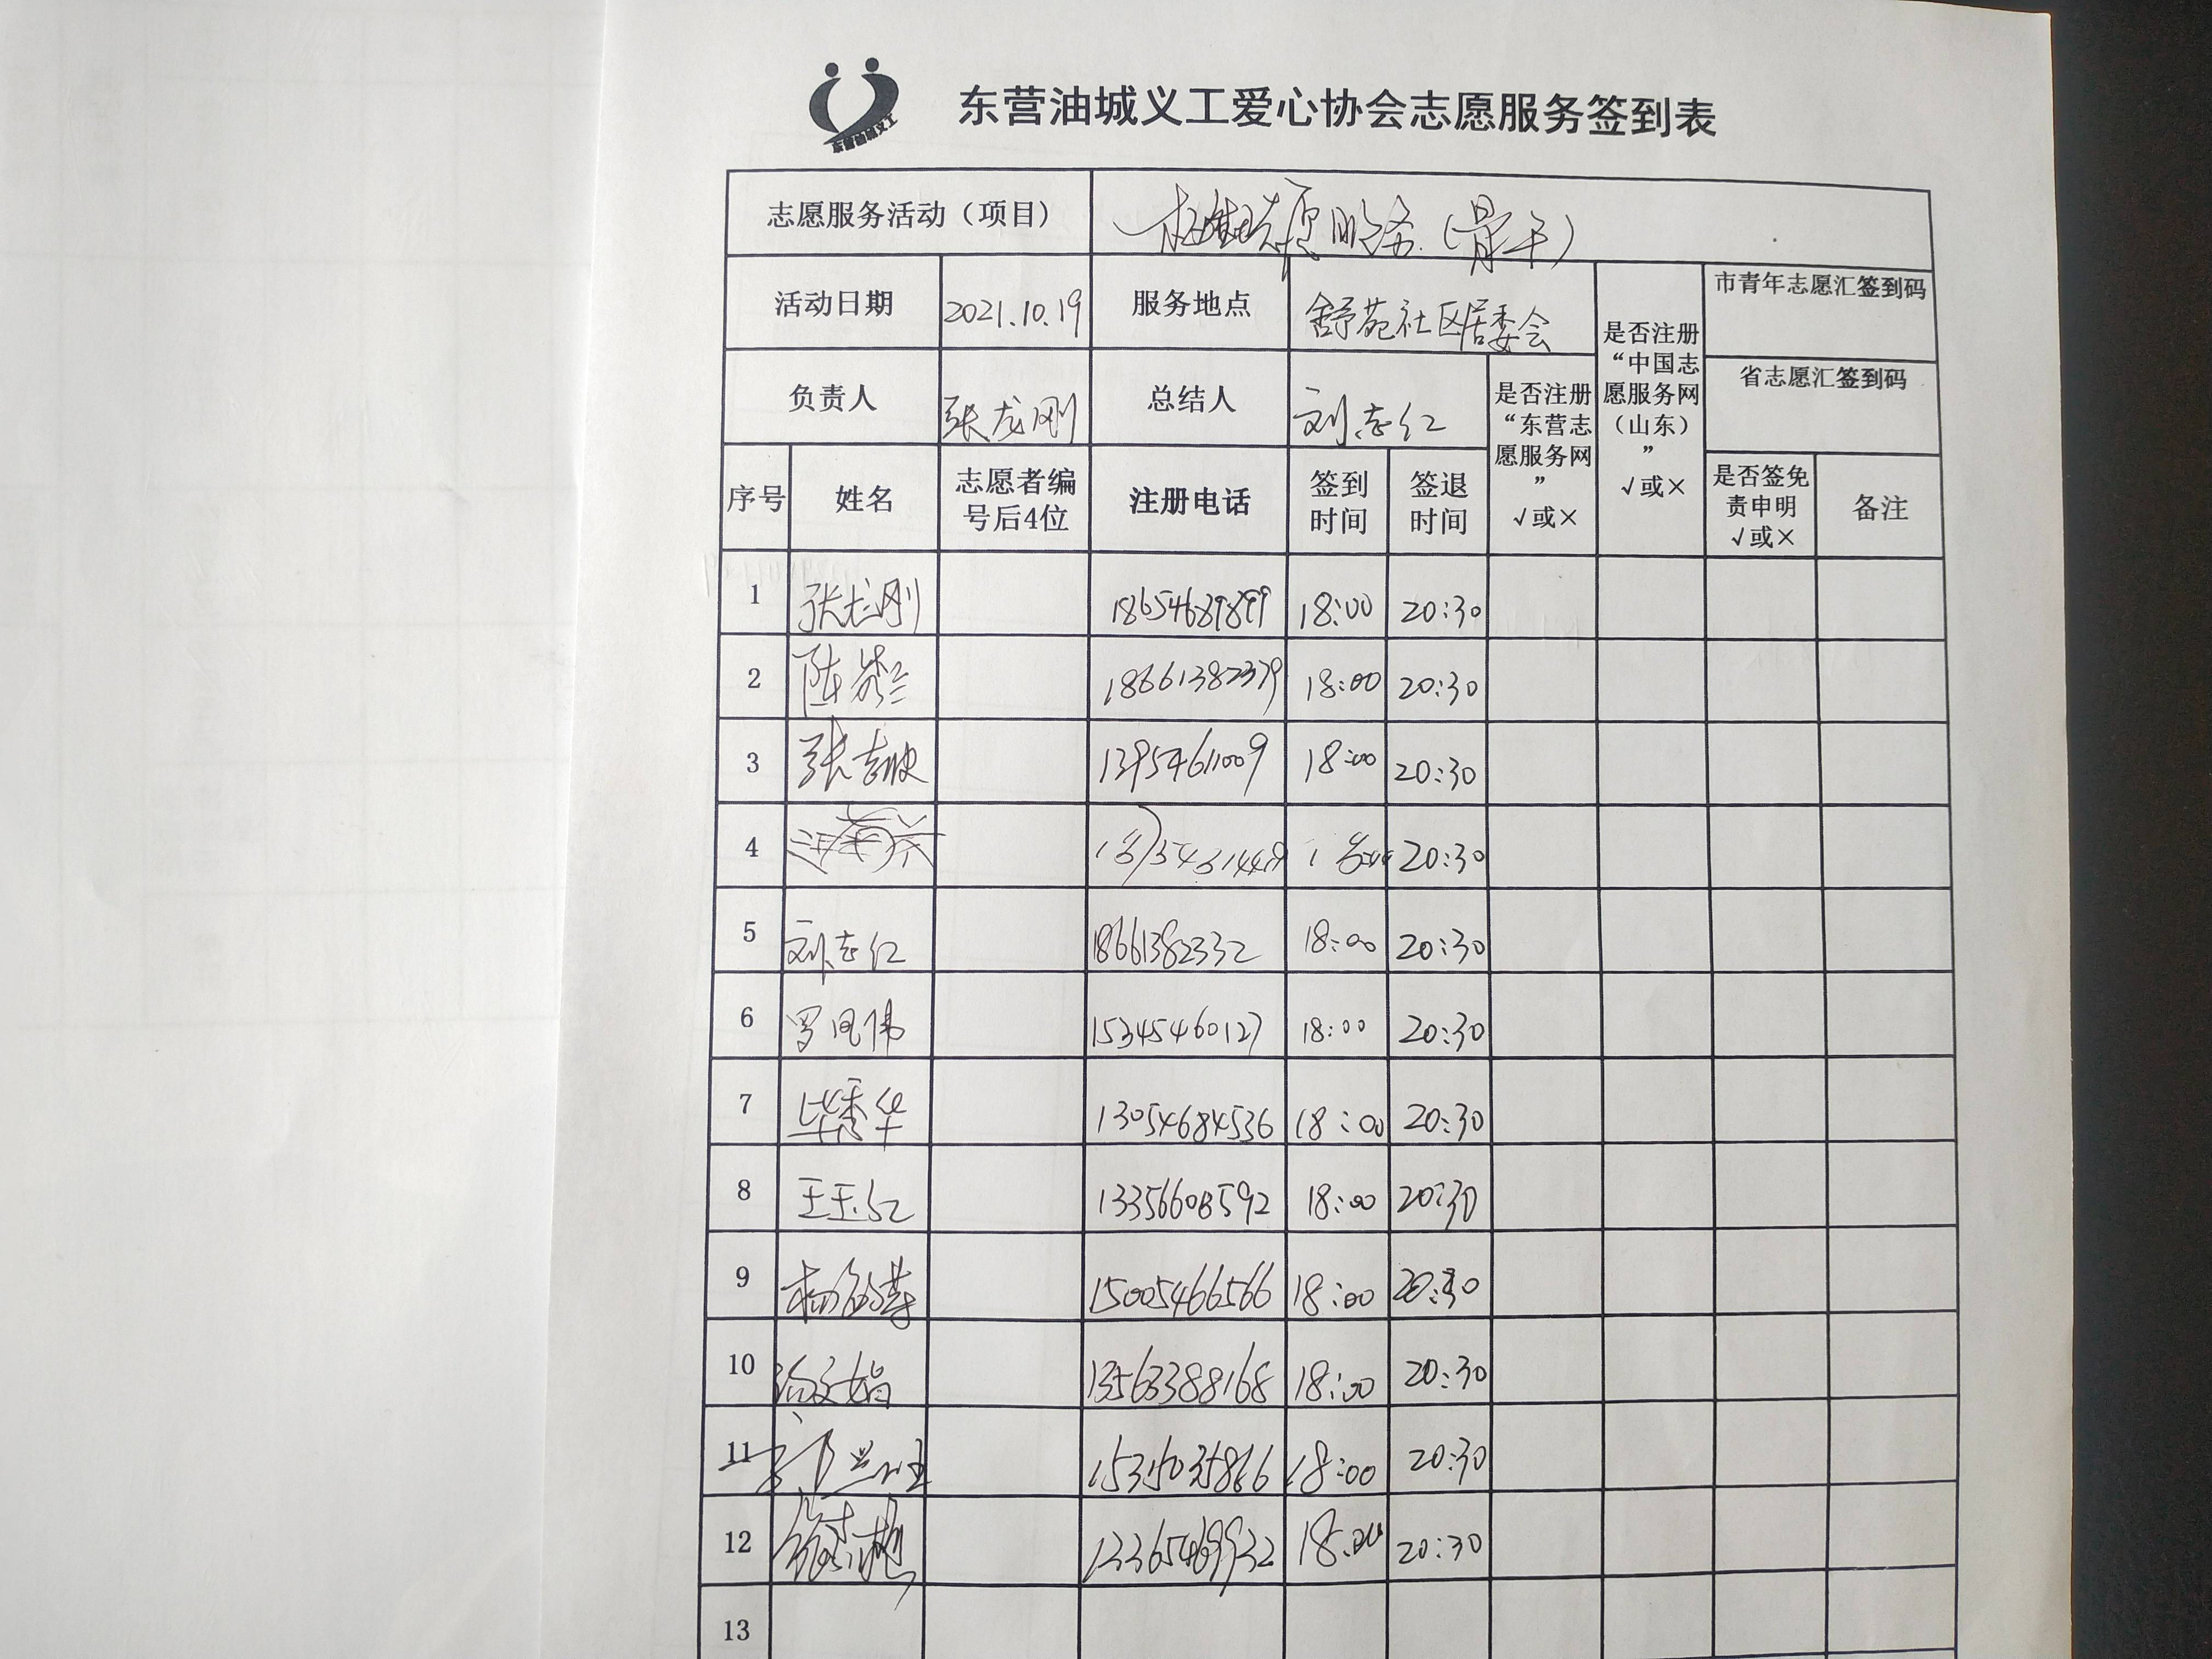 东营油城义工
东营油城义工爱心协会志愿服务签到表
志愿服务活动（项目） 志愿服务（骨干）
活动日期 2021.10.19 服务地点 舒苑社区居委会 是否注册“中国志愿服务网（山东）”√或× 市青年志愿汇签到码
负责人 张龙刚 总结人 刘志红 是否注册“东营志愿服务网”√或× 省志愿汇签到码
序号 姓名 志愿者编号后4位 注册电话 签到时间 签退时间 是否签免责申明√或× 备注
1 张龙刚 18654689899 18:00 20:30
2 陈 18661382379 18:00 20:30
3 张志敏 13954611009 18:00 20:30
4 20:30
5 刘志红 18661382332 18:00 20:30
6 罗凤伟 15345460127 18:00 20:30
7 毕秀华 13054684536 18:00 20:30
8 王玉红 18:00 20:30
9 杨 15005466566 18:00 20:30
10 文娟 13563388168 18:00 20:30
11 郭兰 18:00 20:30
12 徐志 18:00 20:30
13